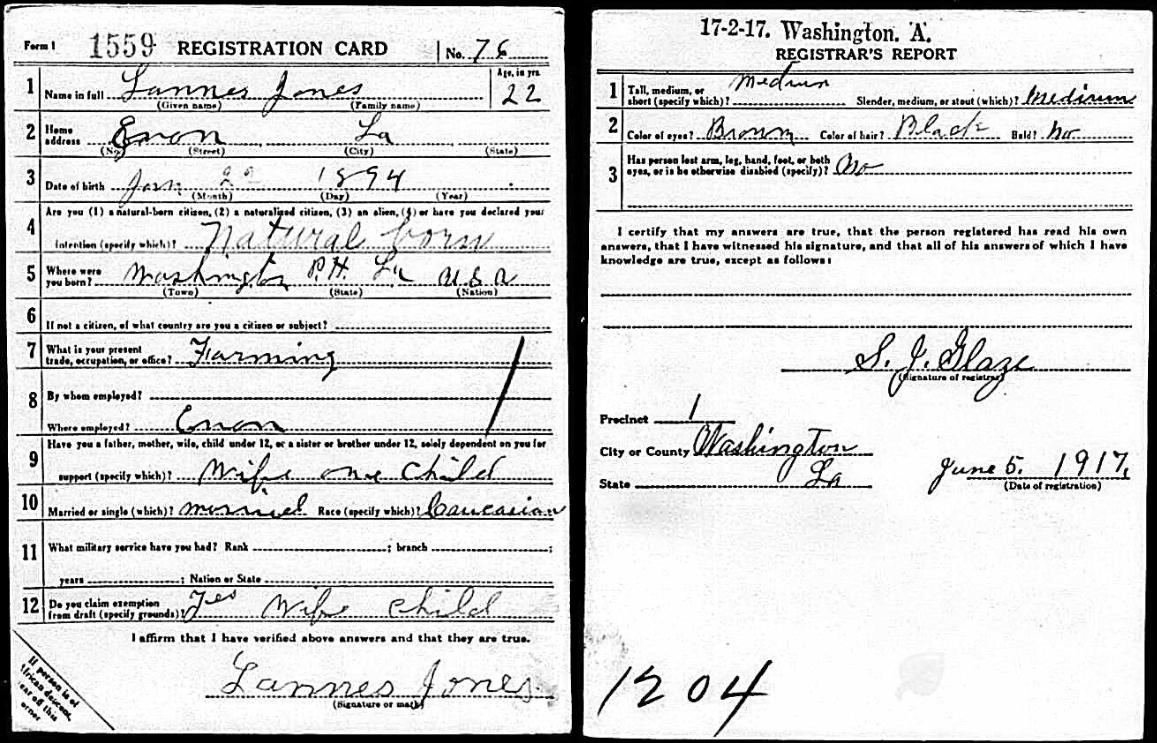 Form 1 1559 REGISTRATION CARD No. 76
1 Name in full Lannes Jones Age, in yrs. 22
(Given name) (Family name)
2 Home address Enon La
(No.) (Street) (City) (State)
3 Date of birth Jan 1894
(Month) (Day) (Year)
4 Are you (1) a natural-born citizen, (2) a naturalized citizen, (3) an alien, (4) or have you declared your
intention (specify which)? Natural born
5 Where were you born? Washington P.H. La U S A
(Town) (State) (Nation)
6 If not a citizen, of what country are you a citizen or subject?
7 What is your present trade, occupation, or office? Farming
8 By whom employed?
Where employed? Enon
9 Have you a father, mother, wife, child under 12, or a sister or brother under 12, solely dependent on you for
support (specify which)? Wife one child
10 Married or single (which)? married Race (specify which)? Caucasian
11 What military service have you had? Rank ; branch ;
years ; Nation or State
12 Do you claim exemption from draft (specify grounds)? Yes Wife Child
I affirm that I have verified above answers and that they are true.
Lannes Jones
(Signature or mark)
If person is of
African descent,
tear off this
corner
17-2-17. Washington. A.
REGISTRAR'S REPORT
1 Tall, medium, or short (specify which)? Medium Slender, medium, or stout (which)? Medium
2 Color of eyes? Brown Color of hair? Black Bald? No
3 Has person lost arm, leg, hand, foot, or both eyes, or is he otherwise disabled (specify)? No
I certify that my answers are true, that the person registered has read his own
answers, that I have witnessed his signature, and that all of his answers of which I have
knowledge are true, except as follows:
S. J. Glaze
(Signature of registrar)
Precinct 1
City or County Washington
State La
June 5. 1917,
(Date of registration)
1204